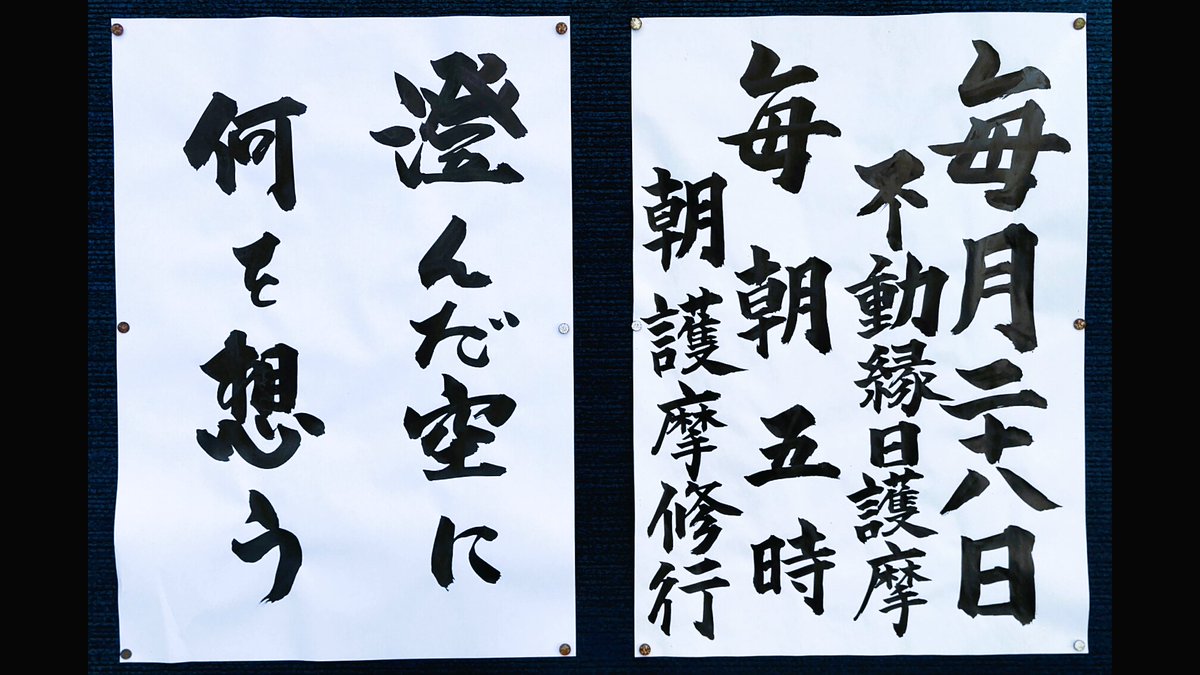 毎月二十八日
不動縁日護摩
毎朝五時
朝護摩修行
澄んだ空に
何を想う